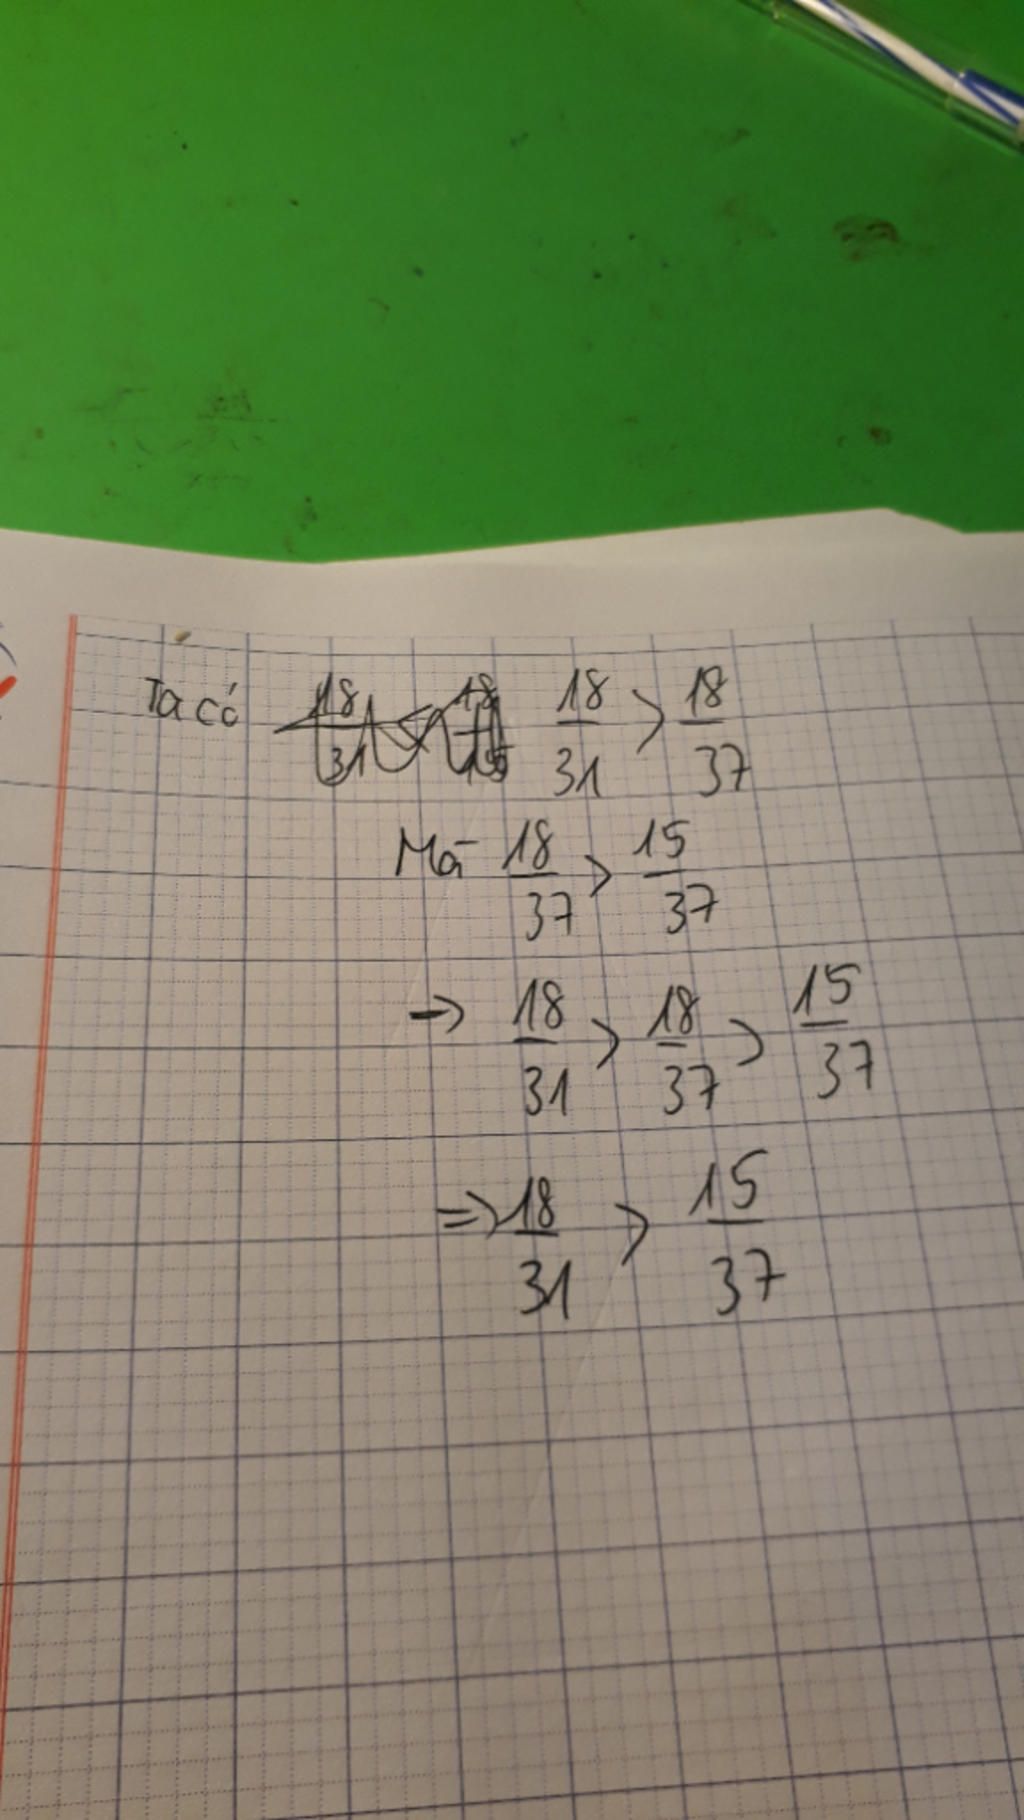 Ta có 18/31 < 18/15 18/31 > 18/37
Mà 18/37 > 15/37
→ 18/31 > 18/37 > 15/37
⇒ 18/31 > 15/37